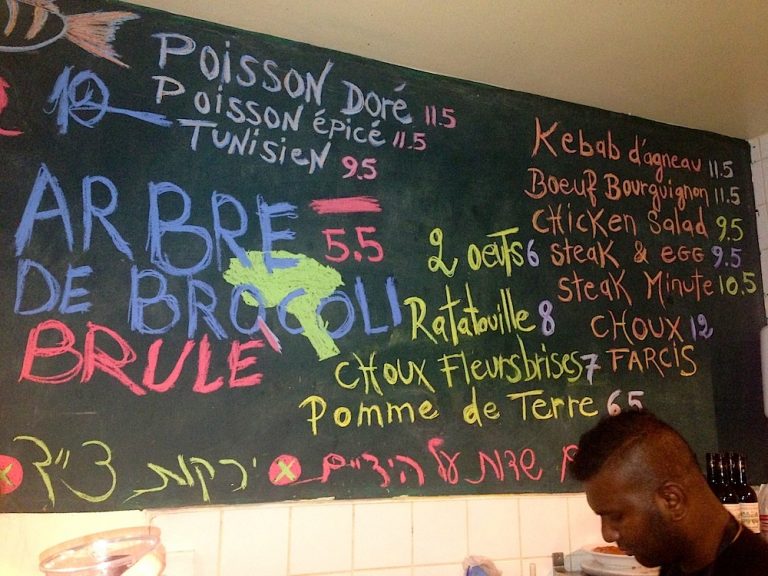 POISSON DORÉ 11.5
POISSON ÉPICÉ 11.5
TUNISIEN 9.5
ARBRE
DE BROCOLI
BRULÉ
5.5
Kebab d'agneau 11.5
Boeuf Bourguignon 11.5
CHICKEN Salad 9.5
steak & EGG 9.5
steak Minute 10.5
CHOUX 12
FARCIS
2 oeufs 6
Ratatouille 8
CHOUX Fleursbrises 7
Pomme de Terre 6.5
שדות על הידיים
ירקות